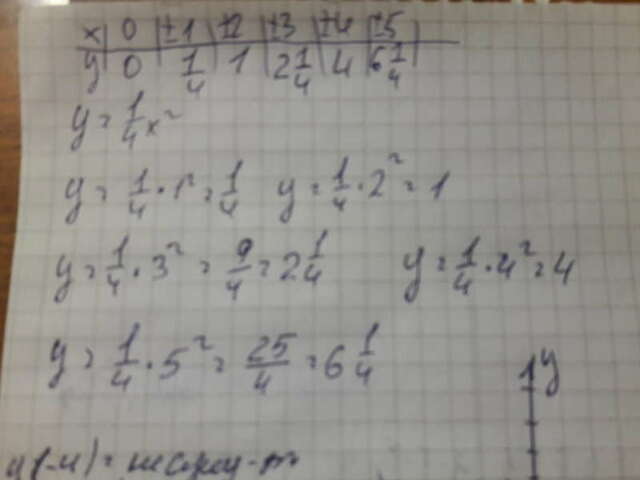 x | 0 | ±1 | ±2 | ±3 | ±4 | ±5
y | 0 | 1/4 | 1 | 2 1/4 | 4 | 6 1/4
y = 1/4 x²
y = 1/4 · 1² = 1/4 y = 1/4 · 2² = 1
y = 1/4 · 3² = 9/4 = 2 1/4 y = 1/4 · 4² = 4
y = 1/4 · 5² = 25/4 = 6 1/4
y